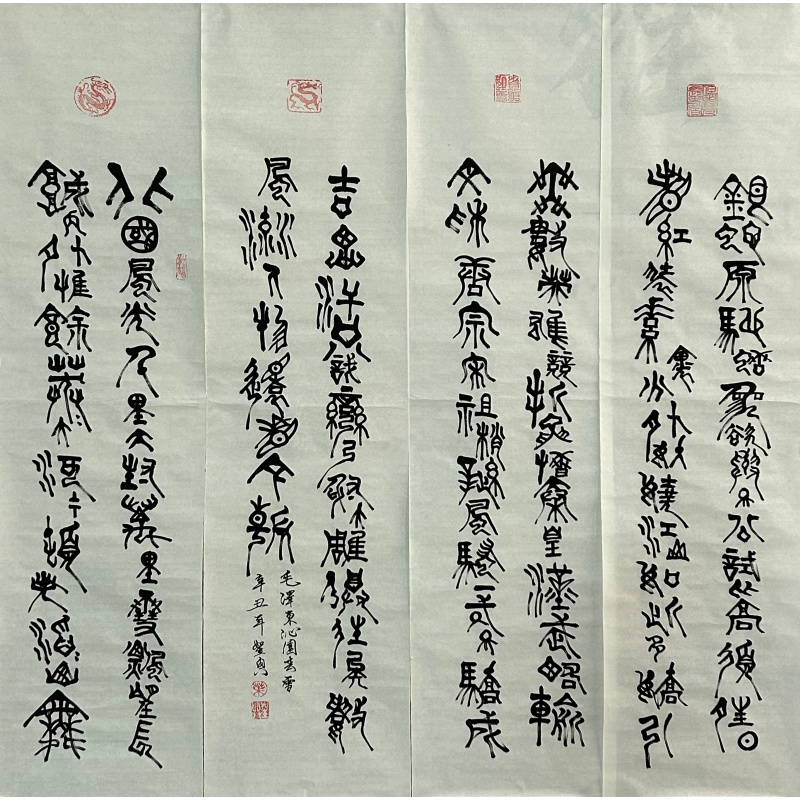 北國風光千里冰封萬里雪飄望長
城內外惟餘莽莽大河上下頓失滔滔山舞
銀蛇原馳蠟象欲與天公試比高須晴日
看紅裝素裹分外妖嬈江山如此多嬌引
無數英雄競折腰惜秦皇漢武略輸
文采唐宗宋祖稍遜風騷一代天驕成
吉思汗只識彎弓射大雕俱往矣數
風流人物還看今朝
毛澤東沁園春雪
辛丑年